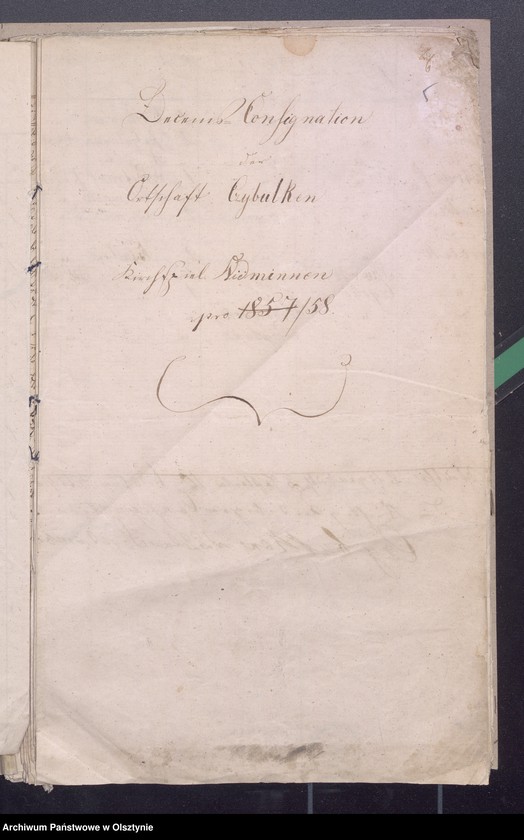 Decems-Consignation
der
Ortschaft Cybulken
Kirchspiel Widminnen
pro 1857/58.
Archiwum Państwowe w Olsztynie